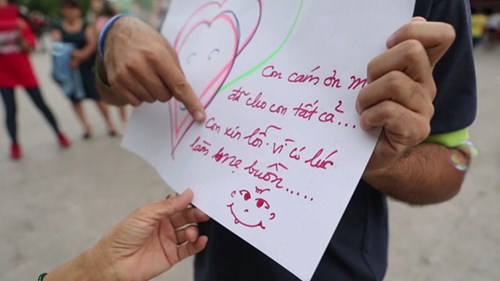 Con cám ơn
đã cho con tất cả...
Con xin lỗi. vì có lúc
làm mẹ buồn.....